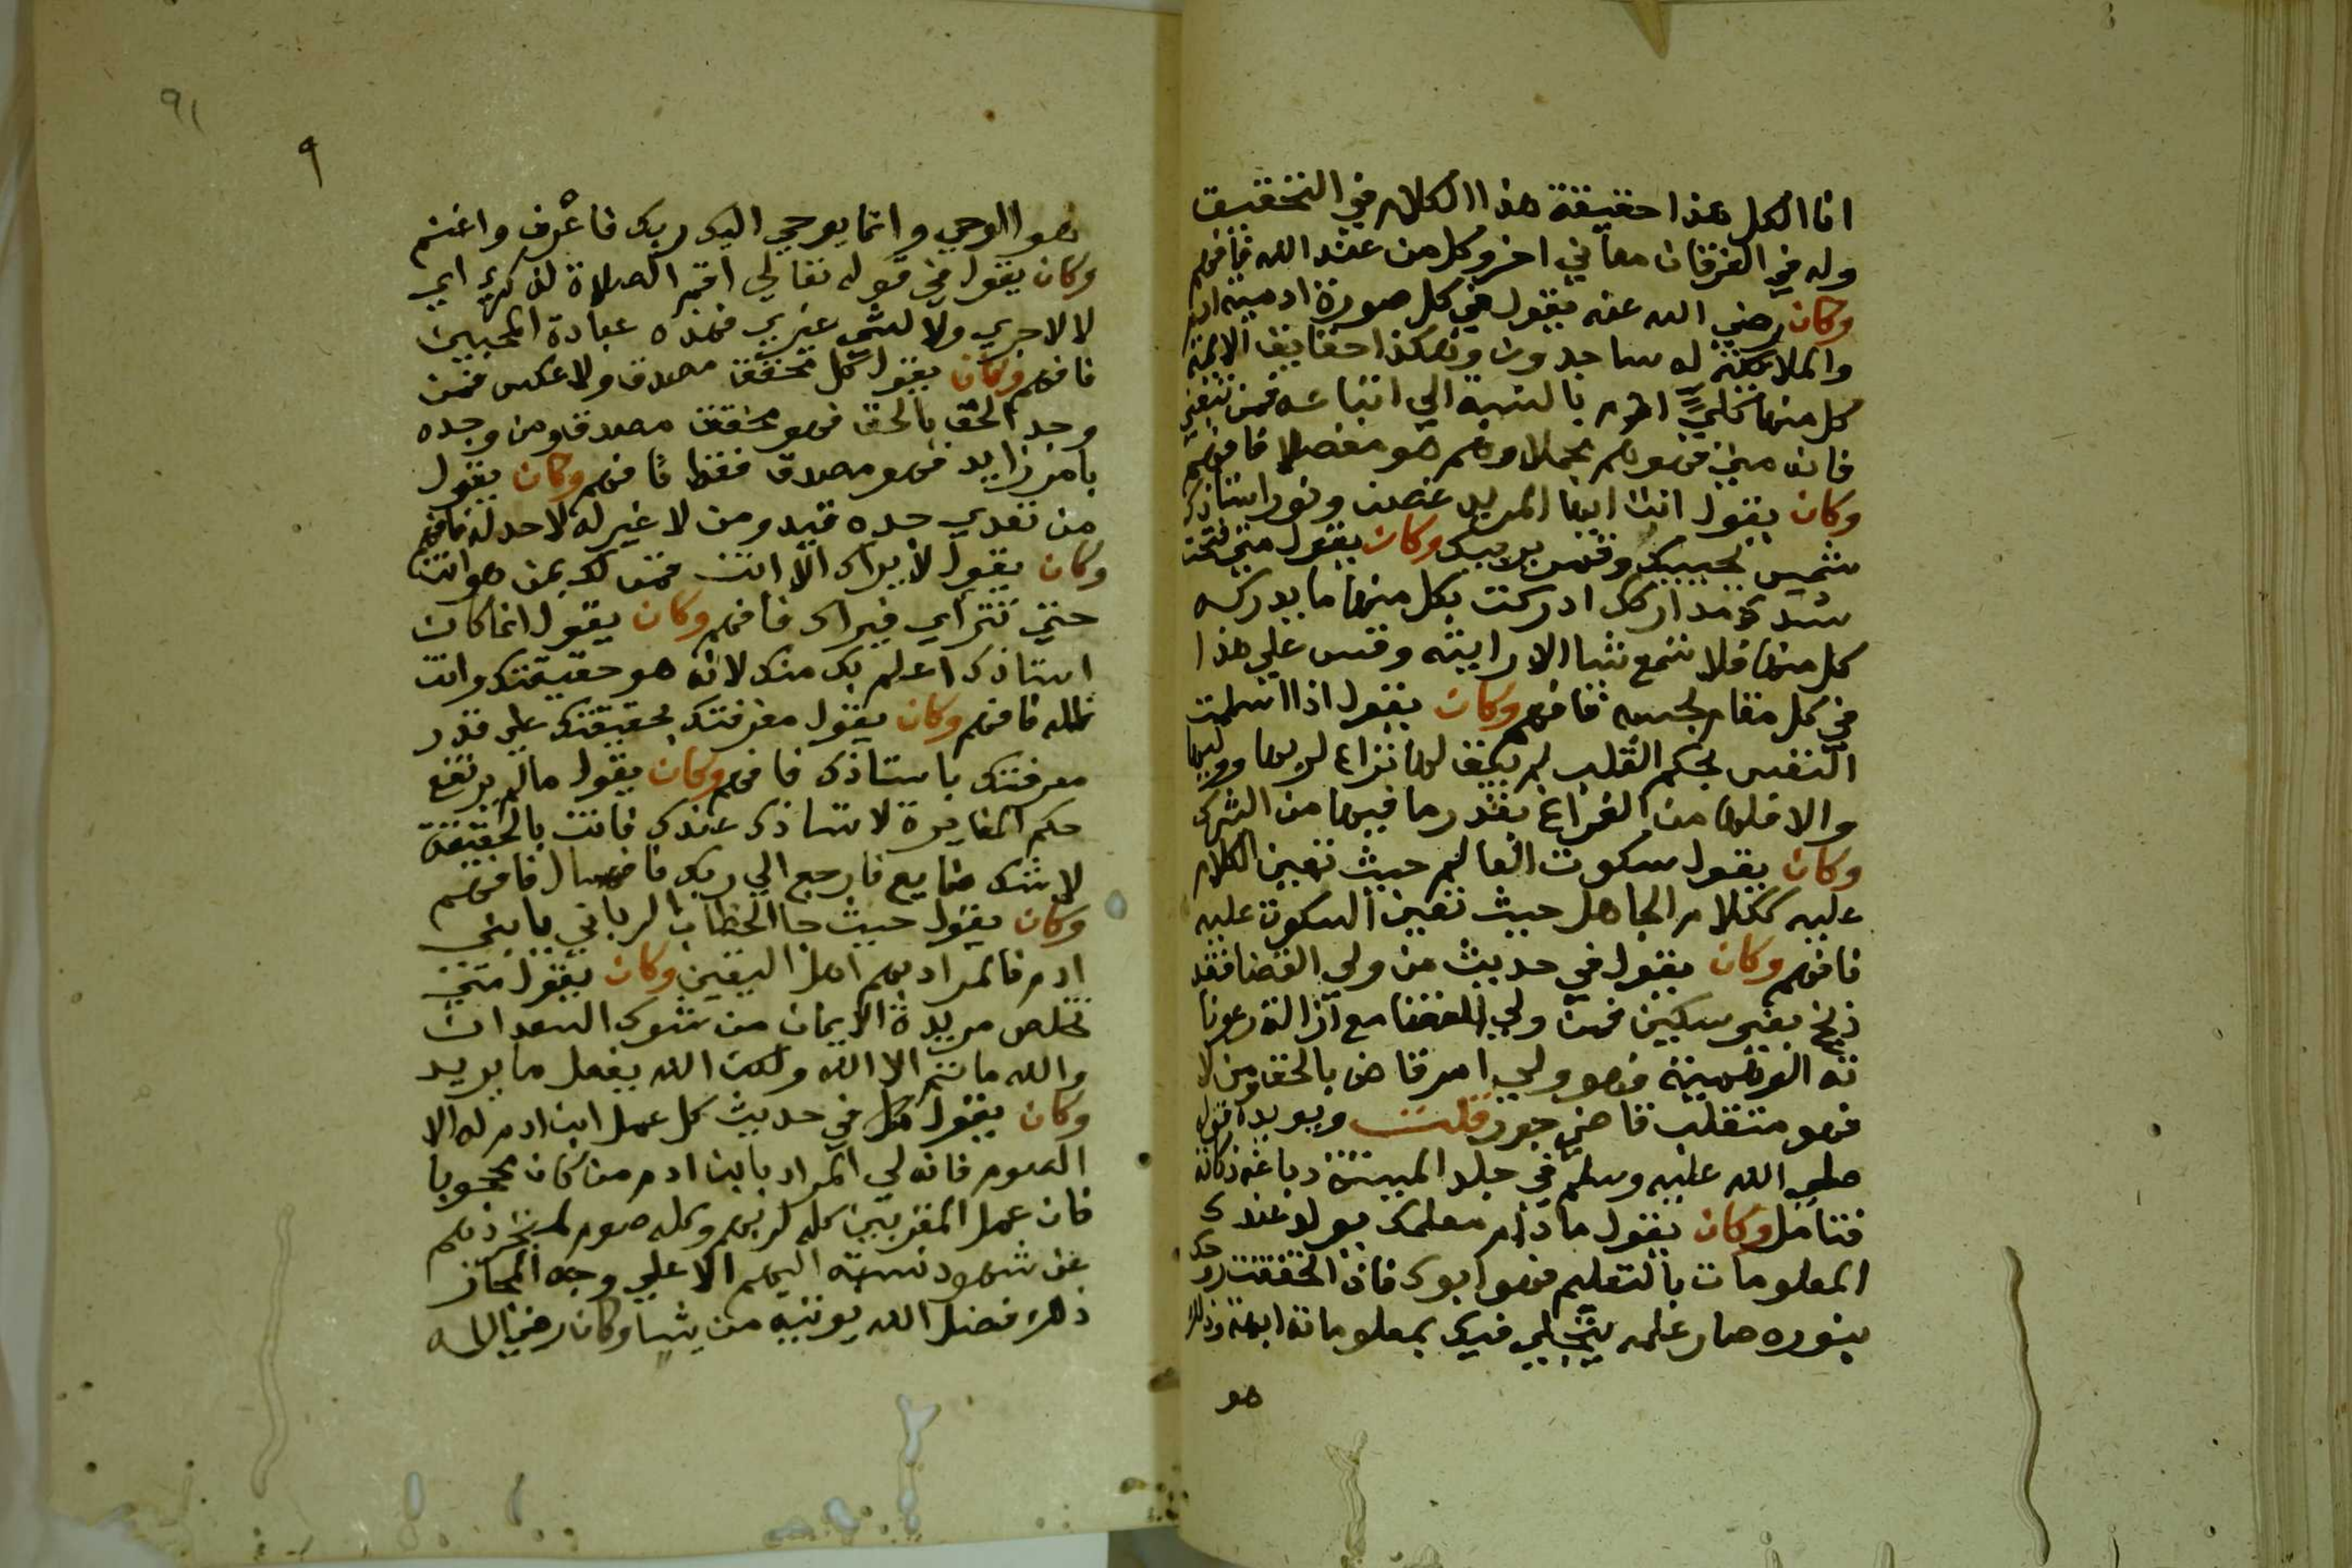 انا الكل هذا حقيقة هذا الكلام في التحقيق
وله في الفرقان معاني اخر وكل من عند الله فافهم
وكان رضي الله عنه يقول في كل صورة ادمية ادم
والملائكة له ساجدون وهكذا حقايق الائمة
كل منها تجلي ادم بالنسبة الي اتباعه فمن تبعني
فانه مني فهو هم مجملا وهم هو مفصلا فافهم
وكان يقول انت ايها المريد غصن ونور استاذك
شمس تحببك وقس بريبك وكان يقول متي فتحت
سدة مداركك ادركت بكل منها ما يدركه
كل منها فلا تسمع شيا الا رايته وقس علي هذا
في كل مقام بحسبه فافهم وكان يقول اذا اسلمت
النفس لحكم القلب لم يبق لها نزاع لربها ووليها
والا فلها من النزاع بقدر ما فيها من الشرك
وكان يقول سكوت العالم حيث تعين الكلام
عليه ككلام الجاهل حيث تعين السكوت عليه
فافهم وكان يقول في حديث من ولي القضا فقد
ذبح بغير سكين فمن ولي القضا مع ازالة رعونا
ته النفسية فهو ولي امر قاض بالحق ومن لا
فهو متقلب قاضي جور قلت ويويده قوله
صلي الله عليه وسلم في جلد الميتة دباغه ذكاته
فتامل وكان يقول ما دام معلمك يولد عندك
المعلومات بالتعليم فهو ابوك فاذا تحققت روحك
بنوره صار علمه يتجلي فيك بمعلوماته ابهة وذلك
هو
٩
٩١
هو الوحي وانما يوحي اليك ربك فاعرف واغنم
وكان يقول في قوله تعالي اقم الصلاة لذكري اي
لا لاجري ولا لشي غيري فهذه عبادة المحبين
فافهم وكان يقول كل محقق مصدق ولا عكس فمن
وجد الحق بالحق فهو محقق مصدق ومن وجده
بامر زايد فهو مصدق فقط فافهم وكان يقول
من تعدي حده قيد ومن لا غير له لا حد له فافهم
وكان يقول لا يراك الا انت فمن لك بمن هو انت
حتي تتراي فيراك فافهم وكان يقول انما كان
استاذك اعلم بك منك لانه هو حقيقتك وانت
ظله فافهم وكان يقول معرفتك بحقيقتك علي قدر
معرفتك باستاذك فافهم وكان يقول مالم يرتفع
حكم المغايرة لاستاذك عندك فانت بالحقيقة
لا شك ضايع فارجع الي ربك فاسال فافهم
وكان يقول حيث جا الخطاب الرباني يا بني
ادم فالمراد بهم اهل اليقين وكان يقول متي
تخلص مريدة الايمان من شوك السعدان
والله ما ثم الا الله ولكن الله يفعل ما يريد
وكان يقول في حديث كل عمل ابن ادم له الا
الصوم فانه لي المراد بابن ادم من كان محجوبا
فان عمل المقربين كله لربهم وكله صوم لتجردهم
عن شهود نسبته اليهم الا علي وجه المجاز
ذلك فضل الله يوتيه من يشا وكان رضي الله